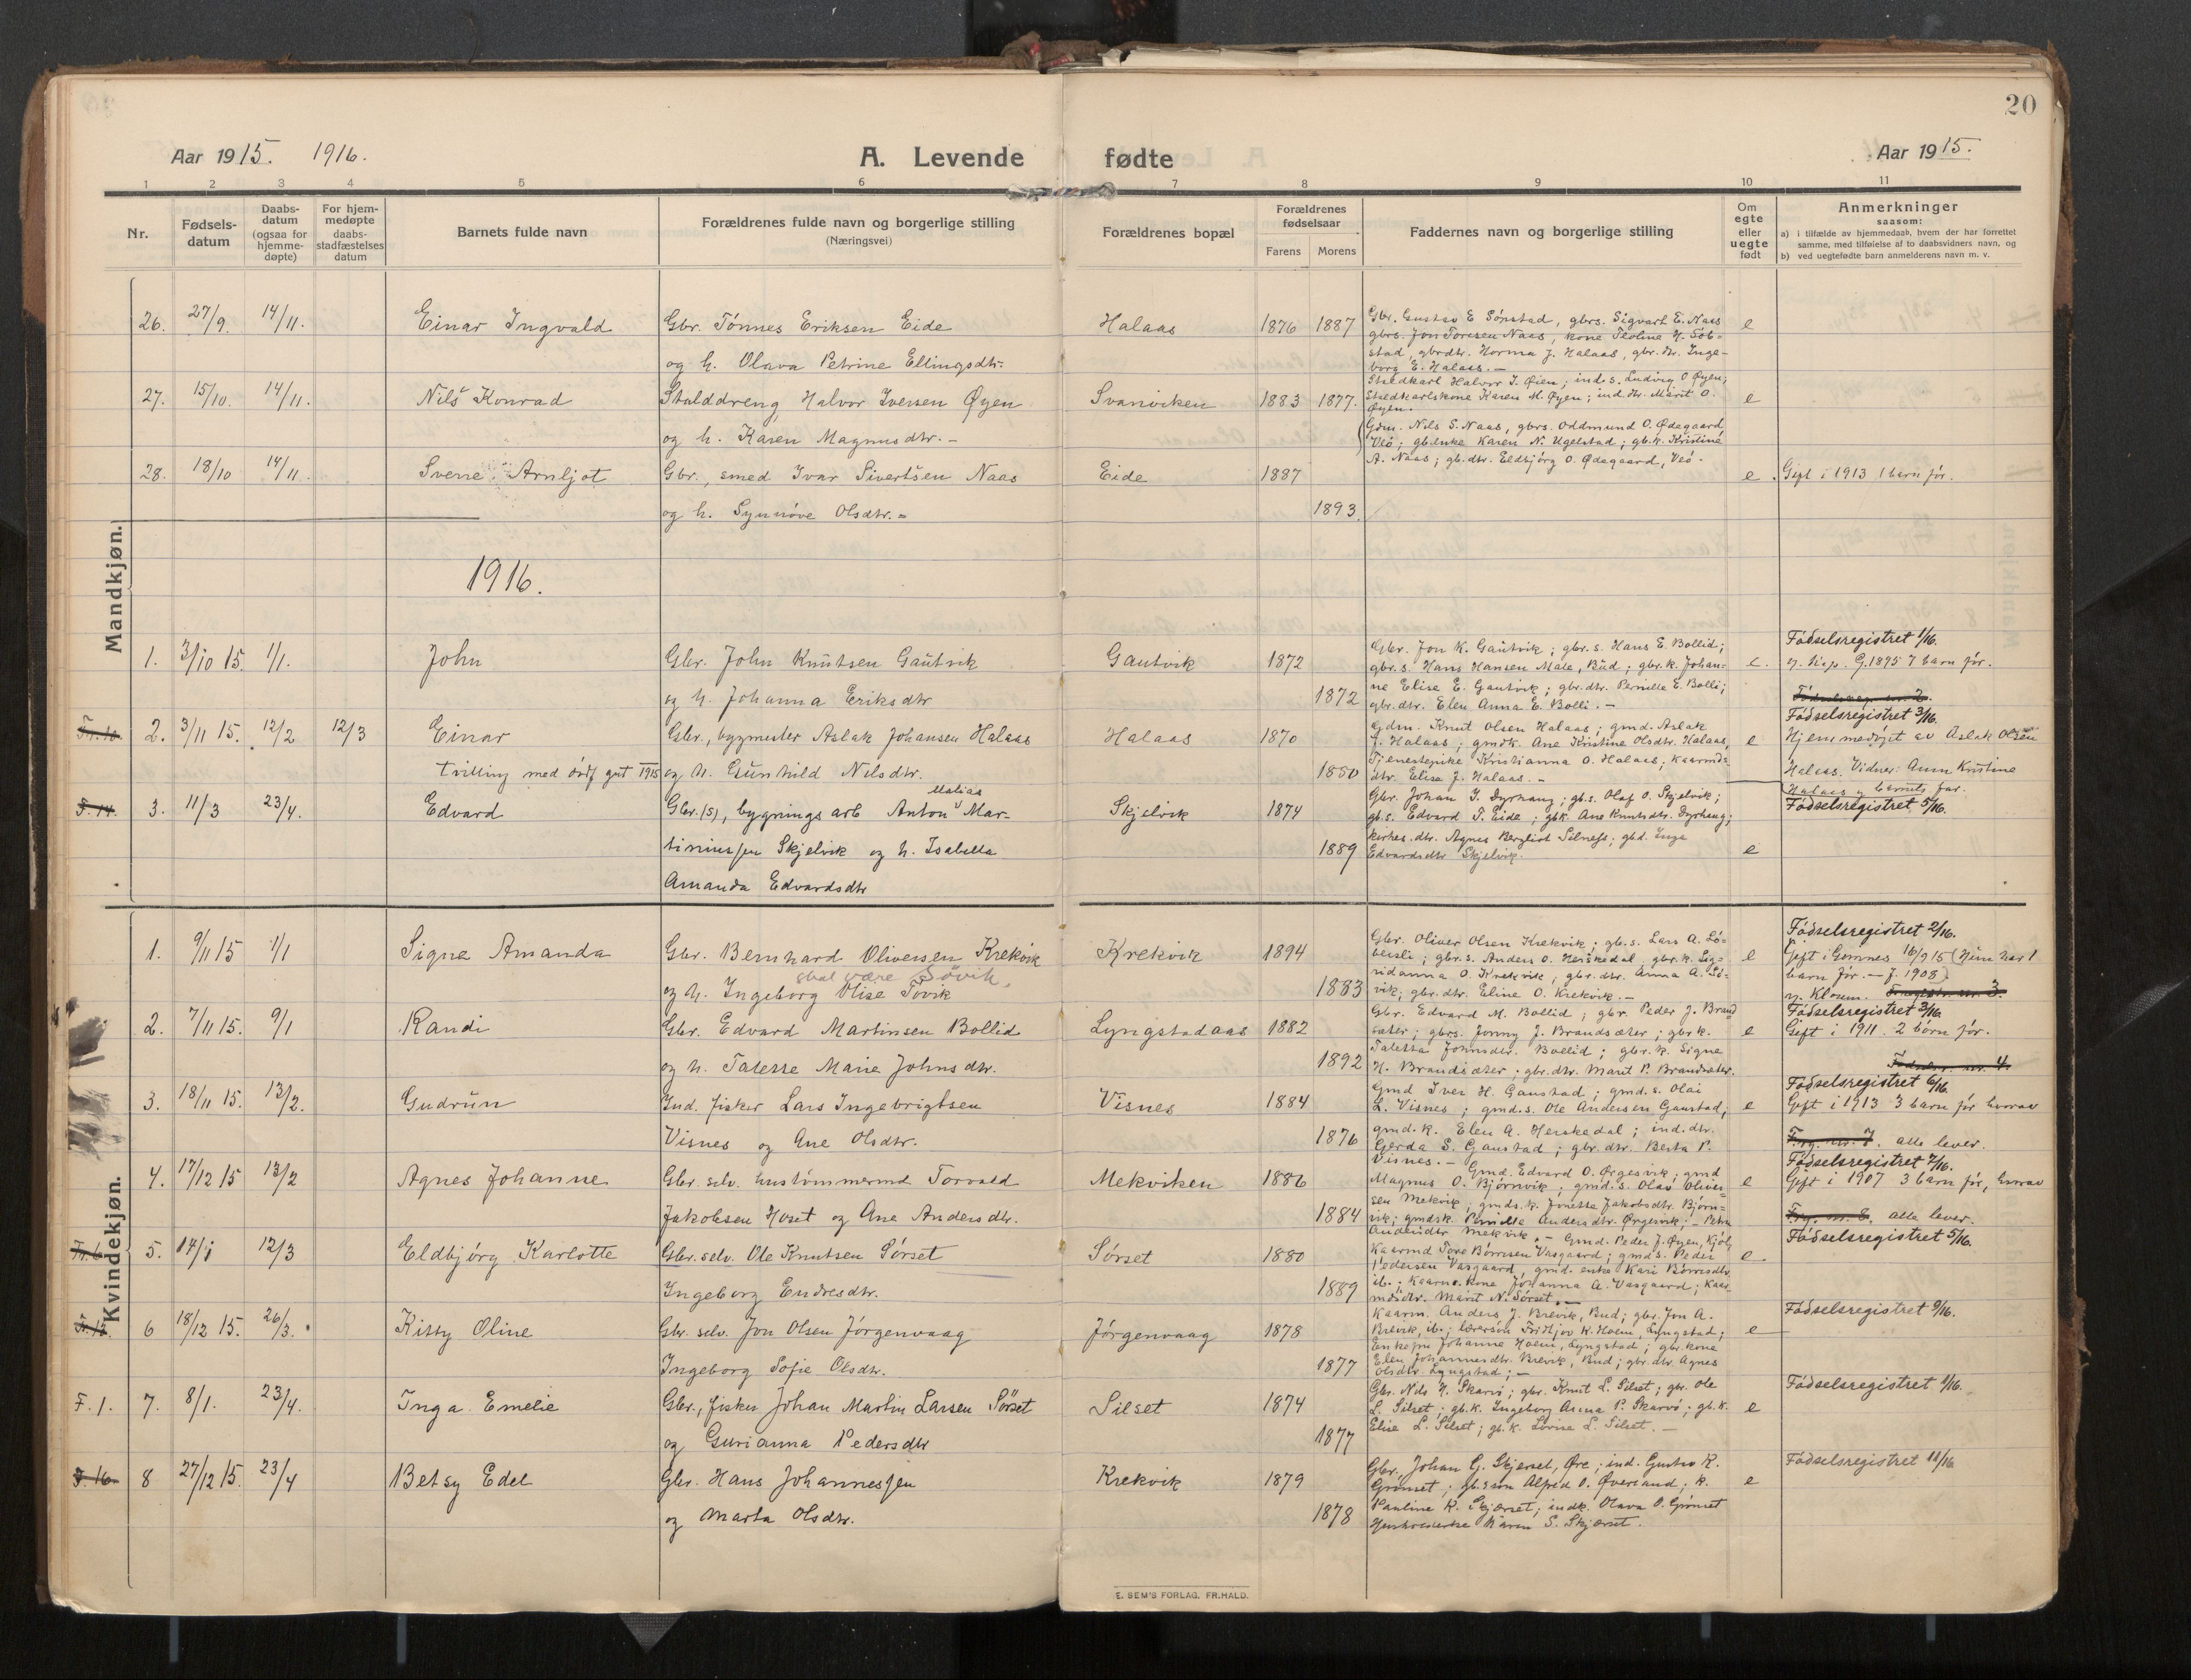 20
Aar 1915. 1916.
A. Levende fødte
Aar 1915.
1 2 3 4 5 6 7 8 9 10 11
Nr.
Fødsels-
datum
Daabs-
datum
(ogsaa for
hjemme-
døpte)
For hjem-
medøpte
daabs-
stadfæstelses
datum
Barnets fulde navn
Forældrenes fulde navn og borgerlige stilling
(Næringsvei)
Forældrenes bopæl
Forældrenes
fødselsaar
Farens Morens
Faddernes navn og borgerlige stilling
Om
egte
eller
uegte
født
Anmerkninger
saasom:
a) i tilfælde av hjemmedaab, hvem der har forrettet
samme, med tilføielse af to daabsvidners navn, og
b) ved uegtefødte barn anmelderens navn m. v.
Mandkjøn.
26. 27/9. 14/11. Einar Ingvald Gbr. Tönnes Eriksen Eide Halaas 1876 1887 e
og h. Olava Petrine Ellingsdtr.
Gbr. Gustav E Sønstad, gbrs. Sigvart E. Naas
gbrs. Jon Toresen Naas, kone
stad, gbrdtr. Horma J. Halaas, gbr. dr. Inge-
borg E. Halaas. –
27. 15/10. 14/11. Nils Konrad Stalddreng Halvor Iversen Øyen Svanviken 1883 1877. e
og h. Karen Magnusdtr. –
Staldkarl Halvor I. Øien; ind. s. Ludvig O Øyen;
Staldkarlskone Karen M. Øyen; ind. dtr. Marit O.
Øyen.
28. 18/10 14/11. Sverre Arnljot Gbr., smed Ivar Sivertsen Naas Eide 1887 e. Gift i 1913 1 barn før.
og h. Synnöve Olsdtr. 1893.
Gdm. Nils S. Naas, gbrs. Oddmund O. Ødegaard,
Veö; gb.enke Karen N. Ugelstad; gb.k. Kristine
A. Naas; gb.dtr. Eldbjörg O. Ødegaard, Veö.
1916.
1. 3/10 15. 1/1. John Gbr. John Knutsen Gautvik Gautvik 1872 e.
og h. Johanna Eriksdtr 1872
Gbr. Jon K. Gautvik; gbr. s. Hans E. Bollid;
gbr. s. Hans Hansen Male, Bud; gbr. k. Johan-
ne Elise E. Gautvik; gbr. dtr. Pernille E. Bolli;
gbr. dtr. Elen Anna E. Bolli. –
Fødselsregistret 1/16.
G. 1895 7 barn før.
2. 3/11 15. 12/2 12/3 Einar Gbr., bygmester Aslak Johansen Halaas Halaas 1870 e
tvilling med dödf gut 1915 og h. Gunhild Nilsdtr. 1880
Gdm. Knut Olsen Halaas; gmd. Aslak
J. Halaas; gmdk. Ane Kristine Olsdtr. Halaas,
Tjenestepike Kristianna O. Halaas; Kaarmds-
dtr. Elisa J. Halaas. –
Fødselsregistret 3/16.
Hjemmedøpt av Aslak Olsen
Halaas. Vidner: Anne Kristine
Halaas og barnets far.
F. 14. 3. 11/3 23/4. Edvard Gbr. (s), bygnings arb Anton Matias Mar- Skjelvik 1874
tiniussen Skjelvik og h. Isabella 1889 e
Amanda Edvardsdtr
Gbr. Johan I. Dyrhaug; gb. s. Olaf O. Skjelvik;
gb. s. Edvard T. Eide; gbk. Ane Knutsdtr. Dyrhaug;
kirkes. dtr. Agnes Bergliot Silness; gbd. Inga
Edvardsdtr Skjelvik.
Fødselsregistret 5/16.
Kvindekjøn.
1. 9/11 15 1/1 Signe Amanda Gbr. Bernhard Oliversen Krekvik Krekvik 1894 e
skal være Søvik.
og h. Ingeborg Olise Tovik 1883
Gbr. Oliver Olsen Krekvik; gb. s. Lars A. Lö-
versli; gbr. s. Anders O. Herskedal, gbr. k. Sig-
ridanna O. Krekvik; gbr. dtr. Anna A. Sö-
vik; gbr. dtr. Eline O. Krekvik. –
Fødselsregistret 2/16.
Gift i Gomnes 16/9 15 (Hun har 1
barn før. – f. 1908)
2. 7/11 15. 9/1 Randi Gbr. Edvard Martinsen Bollid Lyngstadaas 1882 e
og h. Talette Marie Johnsdtr. 1892
Gbr. Edvard M. Bollid; gbr. Peder J. Brand
sæter; gbrs. Jonny J. Brandsæter; gbr k.
Taletta Johnsdtr. Bollid; gbr. k. Signe
H. Brandsæter; gbr. dtr. Marit P. Brandsæter.
Fødselsregistret 3/16.
Gift i 1911. 2 børn før.
3. 18/11 15. 13/2. Gudrun Ind. fisker Lars Ingebrigtsen Visnes 1884 e
Visnes og Ane Olsdtr. 1876
Gmd Iver H. Gaustad; gmd. s. Olai
L. Visnes; gmd. s. Ole Andersen Gaustad;
gmd. k. Elen A. Herskedal; ind. dtr.
Gerda S. Gaustad; gbr. dtr. Berta P.
Visnes. –
Fødselsregistret 6/16.
Gift i 1913 3 barn før hvorav
alle lever.
4. 17/12 15 13/2 Agnes Johanne Gbr. selv. hustömmermd Torvald Mekviken 1886 e
Jakobsen Hoset og Ane Andersdtr. 1884
Gmd. Edvard O. Ørgesvik; gmd
Magnus O. Bjørnvik; gmd. s. Olav Oliver-
sen Mekvik; gmds. k. Jonette Jakobsdtr. Björn-
vik; gmdsk. Pernille Andersdtr. Ørgesvik; – Petra
Andersdtr Mekvik. –
Fødselsregistret 7/16.
Gift i 1907 3 barn før, hvorav
alle lever.
5. 14/1 12/3 Eldbjörg Karlotte Gbr. selv. Ole Knutsen Sörset Sörset 1880 e.
Ingeborg Endresdtr. 1889
Gmd. Peder J. Øyen, Kjöl;
Kaarmd Tore Börresen Vasgaard; gmd s. Peder
Pedersen Vasgaard, gmd. enke Kari Börresdtr
ib.; Kaarm. kone Johanna A. Vasgaard; Kaar
mdsdtr. Marit N. Sörset. –
Fødselsregistret 5/16.
6 18/12 15. 26/3. Kitty Oline Gbr. selv. Jon Olsen Jörgenvaag Jörgenvaag 1878 e
Ingeborg Sofie Olsdtr. 1877
Kaarm. Anders J. Brevik, Bud; gbr. Jon A.
Brevik, ib.; lærersön Fridtjov K. Hoem, Lyngstad;
Johanne Hoem, Lyngstad; gbr. kone
Elen Johannesdtr. Brevik, Bud; gbr. dtr. Agnes
Olsdtr. Lyngstad; –
Fødselsregistret 9/16.
F. 1. 7. 8/1. 23/4. Inga Emelie Gbr., fisker Johan Martin Larsen Sörset Silset 1874 e
og Gurianna Pedersdtr 1877
Gbr. Nils H. Skarvö; gbr. Knut L. Silset; gbr. Ole
L. Silset; gb. k. Ingeborg Anna P. Skarvö; gb. k.
Elise L. Silset; gb. k. Lovise L. Silset. –
Fødselsregistret 1/16.
F. 16. 8 27/12 15. 23/4 Betsy Edel Gbr. Hans Johannessen Krekvik 1879 e
og Marta Olsdtr. 1878
Gbr. Johan G. Skjerset, Øre; ind. Gustav K.
Grönset; gb. sön Alfred O. Øverland; k.
Pauline K. Skjærset; indk. Olava O. Grönset
Karen S. Skjærset.
Fødselsregistret 11/16
E. SEM'S FORLAG, FR.HALD.